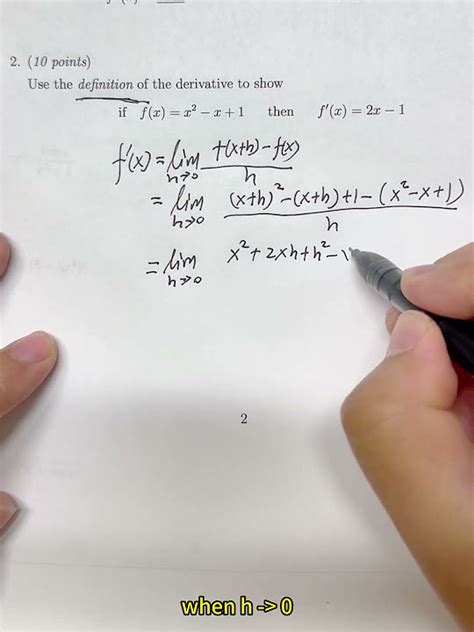 2. (10 points)
Use the definition of the derivative to show
if f(x) = x² − x + 1 then f′(x) = 2x − 1
f'(x) = lim h→0 f(x+h) - f(x) / h
= lim h→0 (x+h)² - (x+h) + 1 - (x² - x + 1) / h
= lim h→0 x² + 2xh + h² -
2
when h -> 0